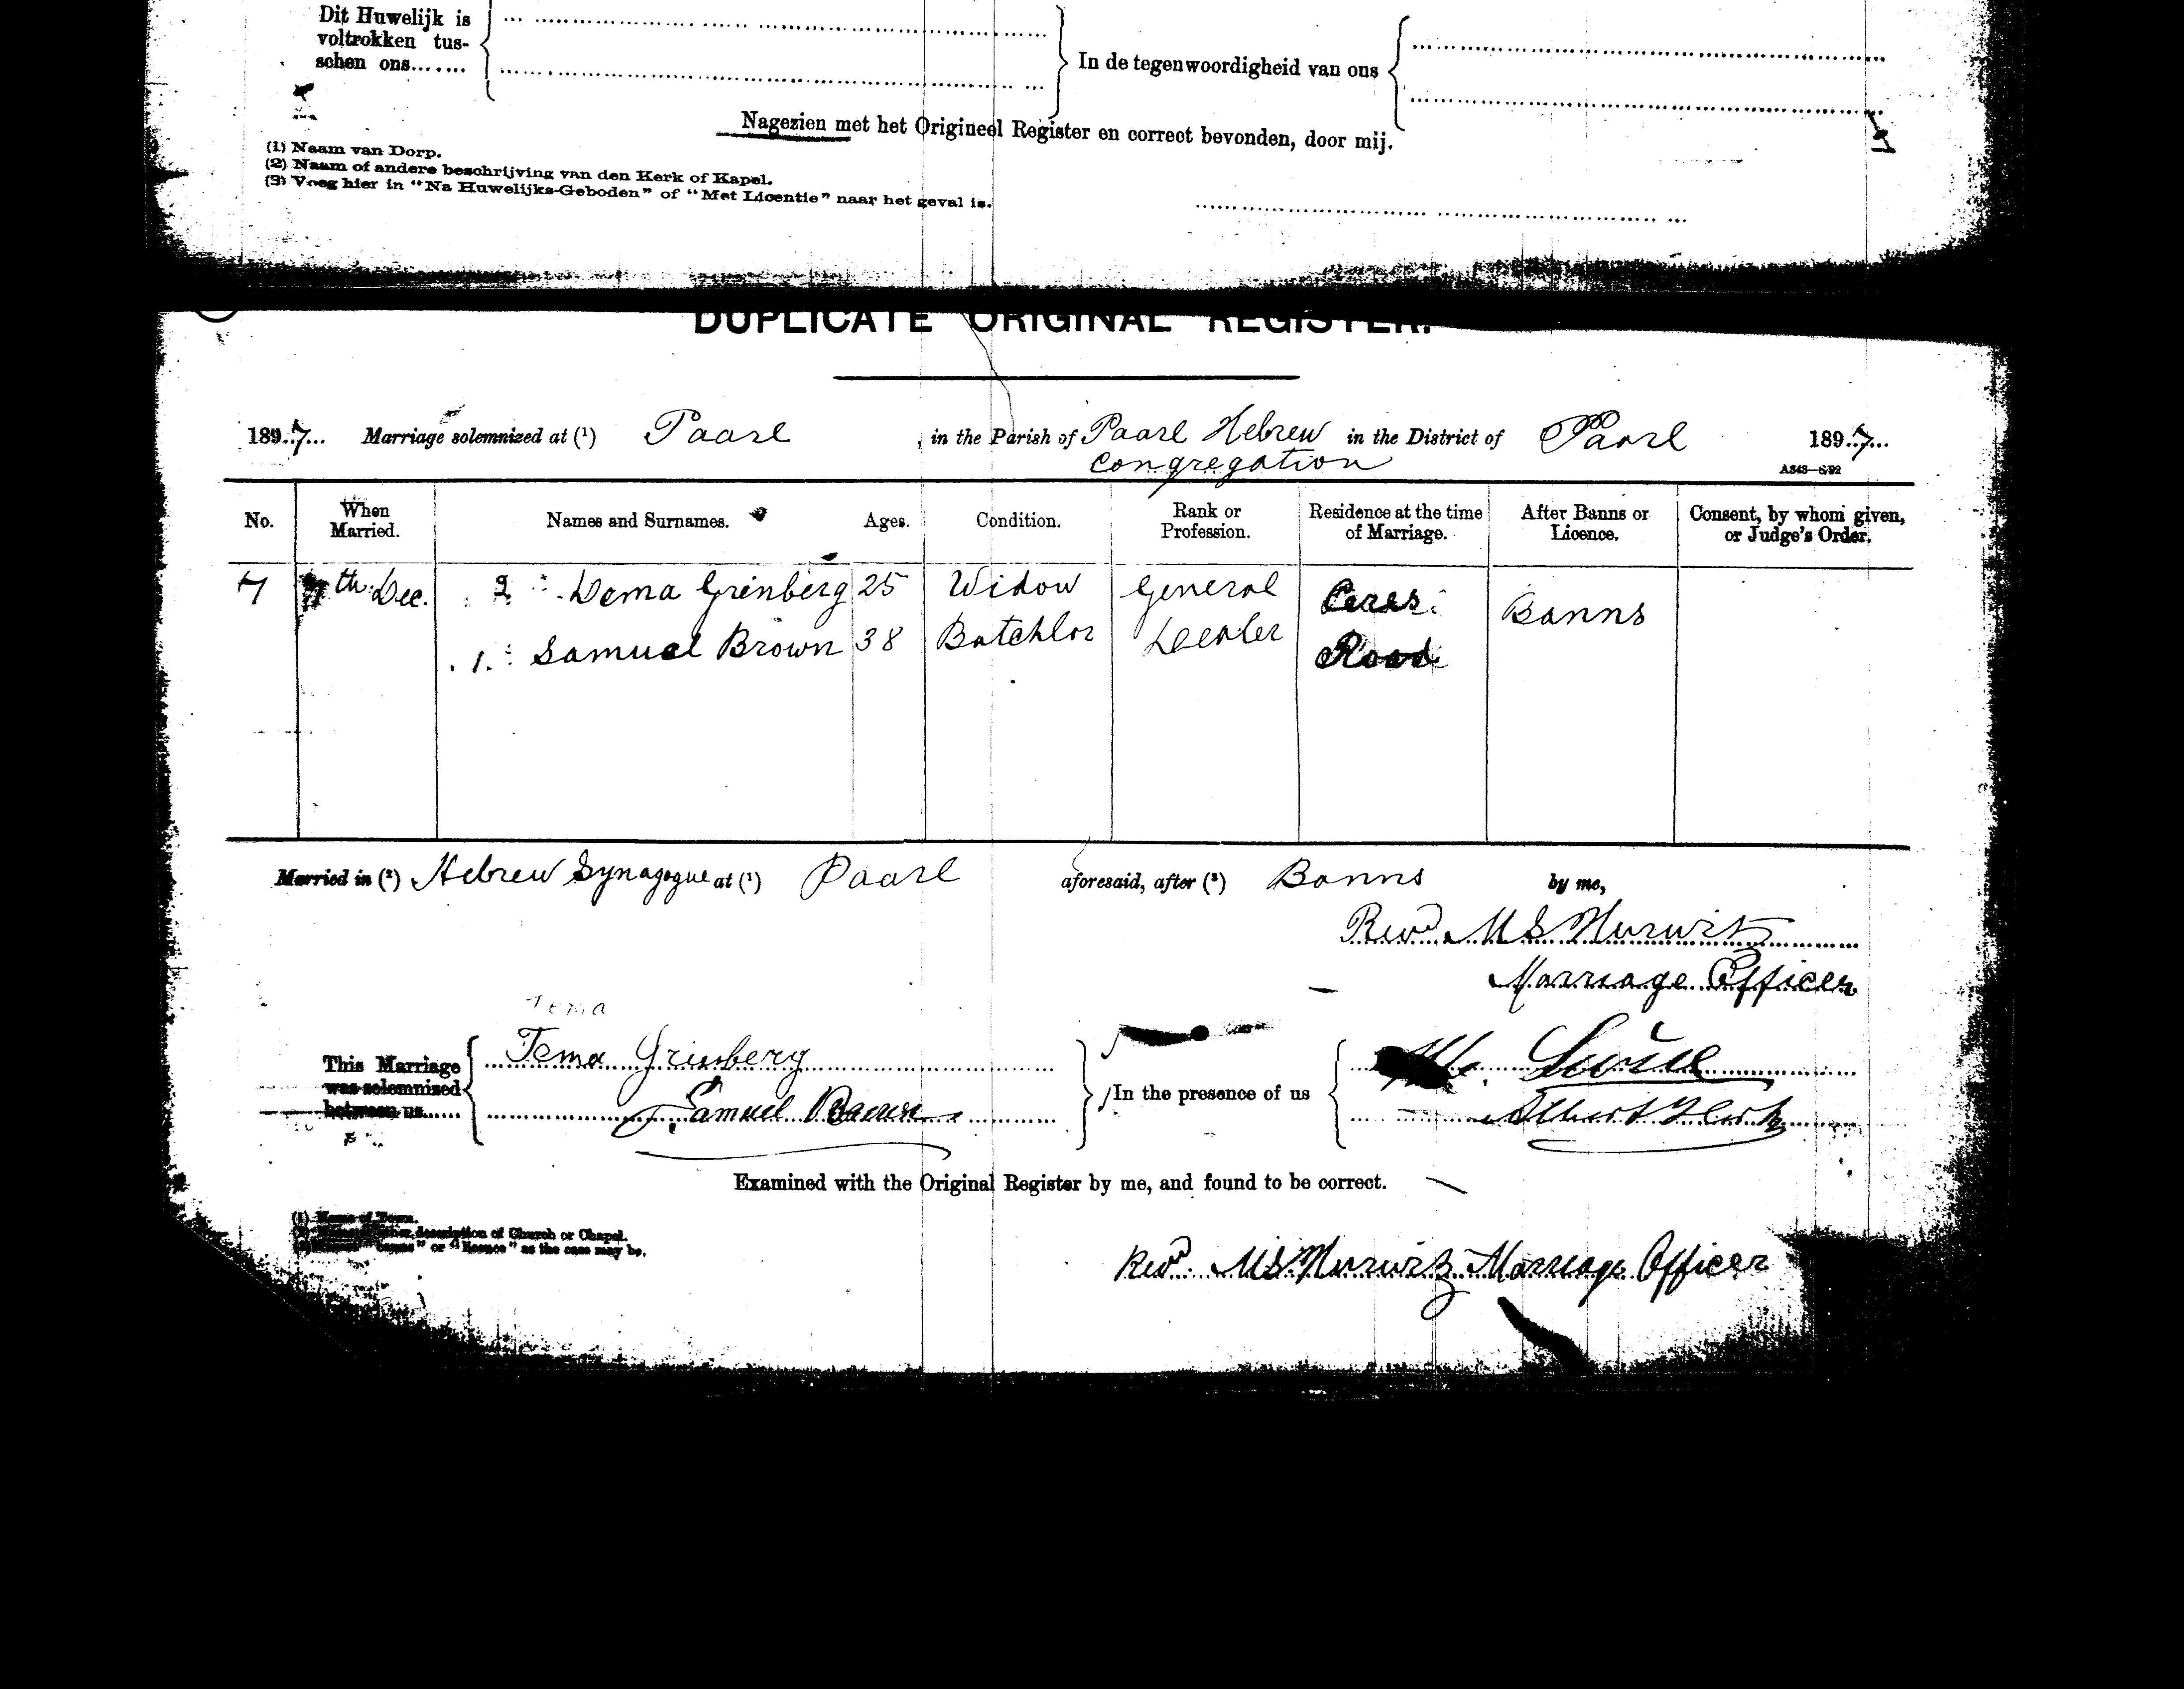 Dit Huwelijk is
voltrokken tus-
schen ons.......
In de tegenwoordigheid van ons
Nagezien met het Origineel Register en correct bevonden, door mij.
(1) Naam van Dorp.
(2) Naam of andere beschrijving van den Kerk of Kapel.
(3) Voeg hier in "Na Huwelijks-Geboden" of "Met Licentie" naar het geval is.
DUPLICATE ORIGINAL REGISTER.
1897 Marriage solemnized at (1) Paarl , in the Parish of Paarl Hebrew in the District of Paarl 1897
Congregation
No. When Married. Names and Surnames. Ages. Condition. Rank or Profession. Residence at the time of Marriage. After Banns or Licence. Consent, by whom given, or Judge's Order.
7 7th Dec. 2 Dema Grinberg 25 Widow General Ceres Banns
1. Samuel Brown 38 Batchlor Dealer Road
Married in (2) Hebrew Synagogue at (1) Paarl aforesaid, after (3) Banns by me,
Revd M S Hurwitz
Marriage Officer
Tema
This Marriage
was solemnized
between us......
Tema Grinberg
Samuel Brown
In the presence of us
Albert
Examined with the Original Register by me, and found to be correct.
(1) Name of Town.
other description of Church or Chapel.
"banns" or "licence" as the case may be.
Revd. M S Hurwitz Marriage Officer